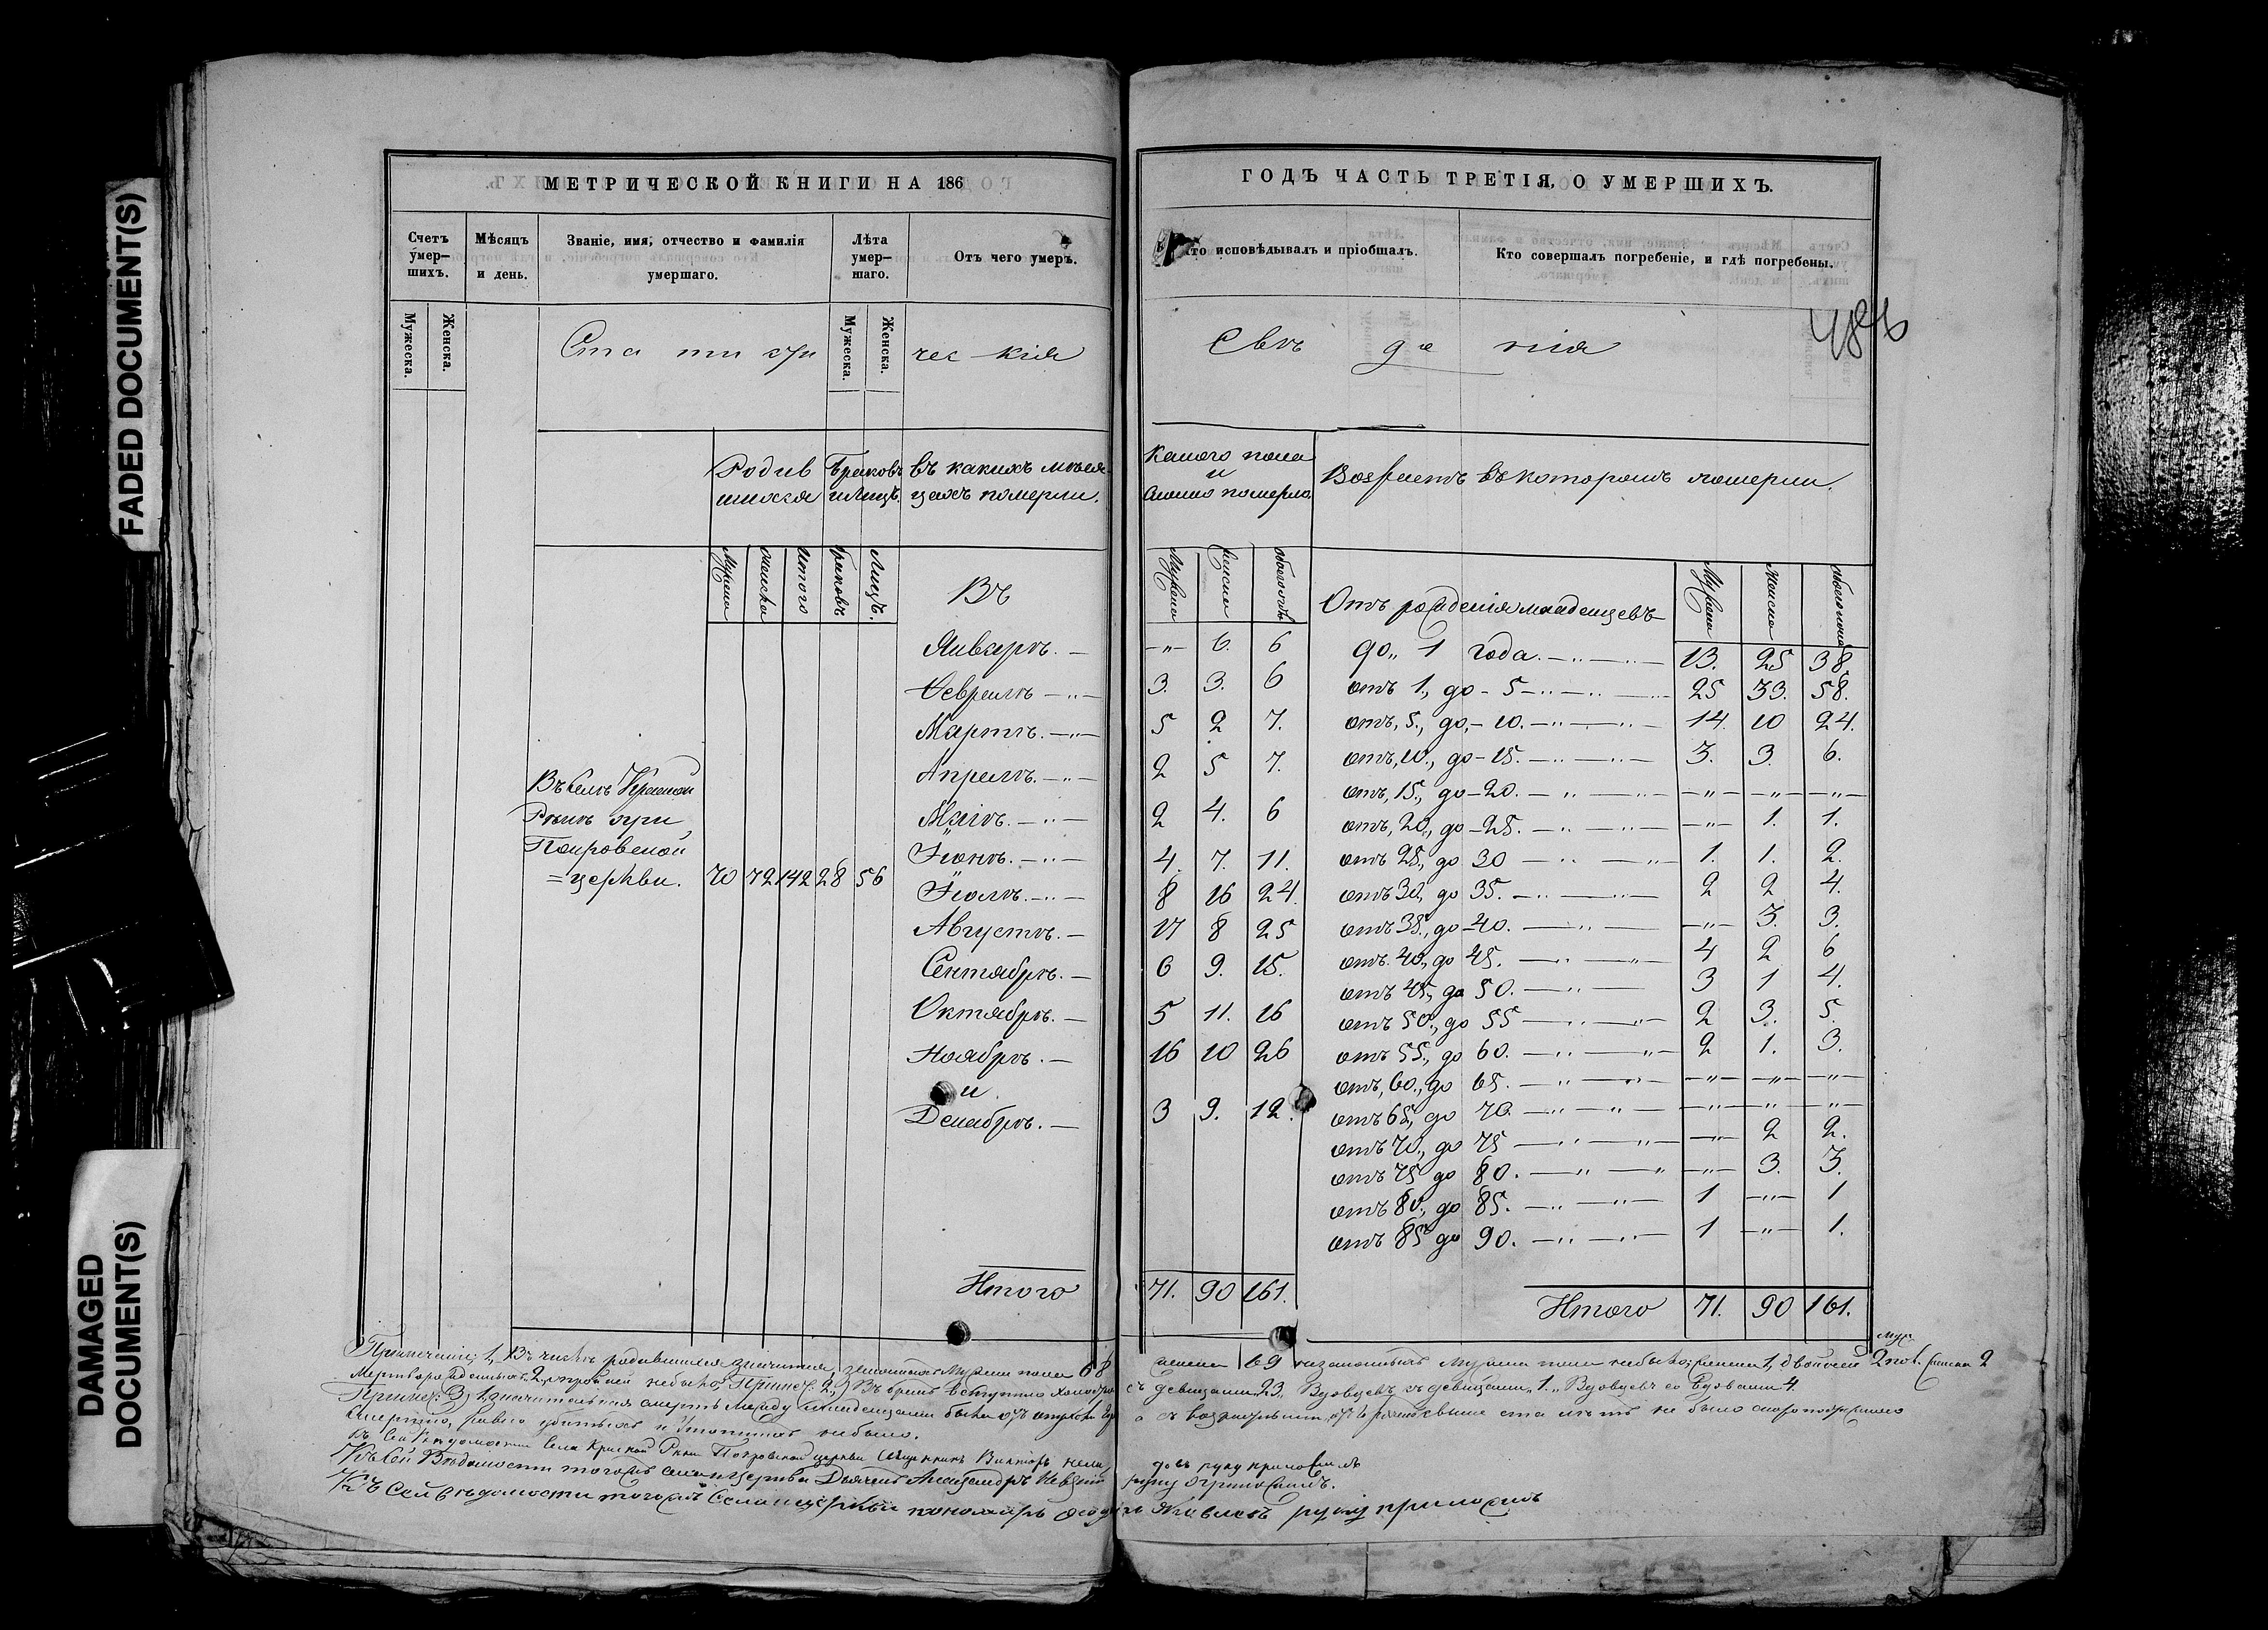 FADED DOCUMENT(S)
DAMAGED DOCUMENT(S)
МЕТРИЧЕСКОЙ КНИГИ НА 186
Счетъ умер-шихъ.
Мѣсяцъ и день.
Званіе, имя, отчество и фамилія умершаго.
Лѣта умер-шаго.
Отъ чего умеръ.
Мужеска.
Женска.
Мужеска.
Женска.
Ста ти сти чес кія
Родив шихся
Браковъ и Лицъ.
Въ какихъ мѣся-цахъ померли.
Мужеска
Женска
Итого
Браковъ
Лицъ.
Въ
Январѣ. —
Февралѣ — „ —
Мартѣ. — „ —
Апрелѣ. — „ —
Маіѣ. — „ —
Іюнѣ. — „ —
Іюлѣ. — „ —
Августѣ. —
Сентябрѣ. —
Октябрѣ. —
Ноябрѣ. —
и
Декабрѣ. —
Въ Селѣ Красной
Рѣкѣ при
Покровской
= церкви. 70 72 142 28 56
Итого
ГОДЪ ЧАСТЬ ТРЕТІЯ, О УМЕРШИХЪ.
Кто исповѣдывалъ и пріобщалъ.
Кто совершалъ погребеніе, и гдѣ погребены.
Свѣ де нія
Какого пола
и
Сколько померло
Возрастъ въ которомъ померли.
Мужеска
Женска
Обоего
— „ — 6. 6
3. 3. 6
5 2 7.
2 5 7.
2 4. 6
4. 7. 11.
8 16 24.
17 8 25
6 9. 15.
5 11. 16
16 10 26
3 9. 12.
71. 90 161.
Отъ рожденія младенцевъ
Мужеска
Женска
Обоего пола
до „ 1 года. — „ — „ — 13. 25 38.
отъ 1., до - 5 — „ — „ — 25 33. 58.
отъ, 5., до, - 10. — „ — „ — 14. 10 24.
отъ, 10., до - 15. — „ — „ — 3. 3. 6.
отъ, 15., до - 20. — „ — „ — — „ — — „ — — „ —
отъ, 20., до - 25. — „ — „ — — „ — 1. 1.
отъ 25., до 30 — „ — „ — 1. 1. 2.
отъ 30, до 35. — „ — „ — 2 2 4.
отъ 35., до - 40. — „ — — „ — 3. 3.
отъ. 40., до 45. — „ — „ — 4 2 6
отъ 45., до 50. — „ — 3 1 4.
отъ 50., до 55 — „ — „ — 2 3. 5.
отъ 55., до 60. — „ — „ — 2 1. 3.
отъ, 60., до 65. — „ — „ — — „ — — „ — — „ —
отъ 65, до 70. — „ — „ — — „ — — „ — — „ —
отъ 70., до 75 — „ — „ — — „ — 2 2.
отъ 75 до 80. — „ — „ — „ — 3. 3.
отъ 80., до 85. — „ — „ — 1 — „ — 1
отъ 85 до 90. — „ — „ — 1 — „ — 1.
Итого 71. 90 161.
Примечаніе; 1, Въ числѣ родившихся значится, законныхъ Мужска пола 68 женска 69 незаконныхъ мужска пола небыло; женска 1, двойней 2
Мертворожденныхъ 2, тройней небыло, Примеч: 2,) Въ бракъ вступило съ девицами 23, Вдовцевъ съ девицами „ 1. „ Вдовцевъ со Вдовами 4.
Примеч: 3) значительная смерть между младенцами была свыше ста лѣтъ не было
Смертію, равно убитыхъ и Утопшихъ небыло.
Къ Сей Вѣдомости Села Красной Рѣки Покровской церкви Священникъ Викторъ руку приложилъ
Къ Сей Вѣдомости тогожъ села и церкви Дьячекъ Александръ руку приложилъ.
Къ Сей вѣдомости тогожъ Села и церкви пономарь Яковлевъ руку приложилъ